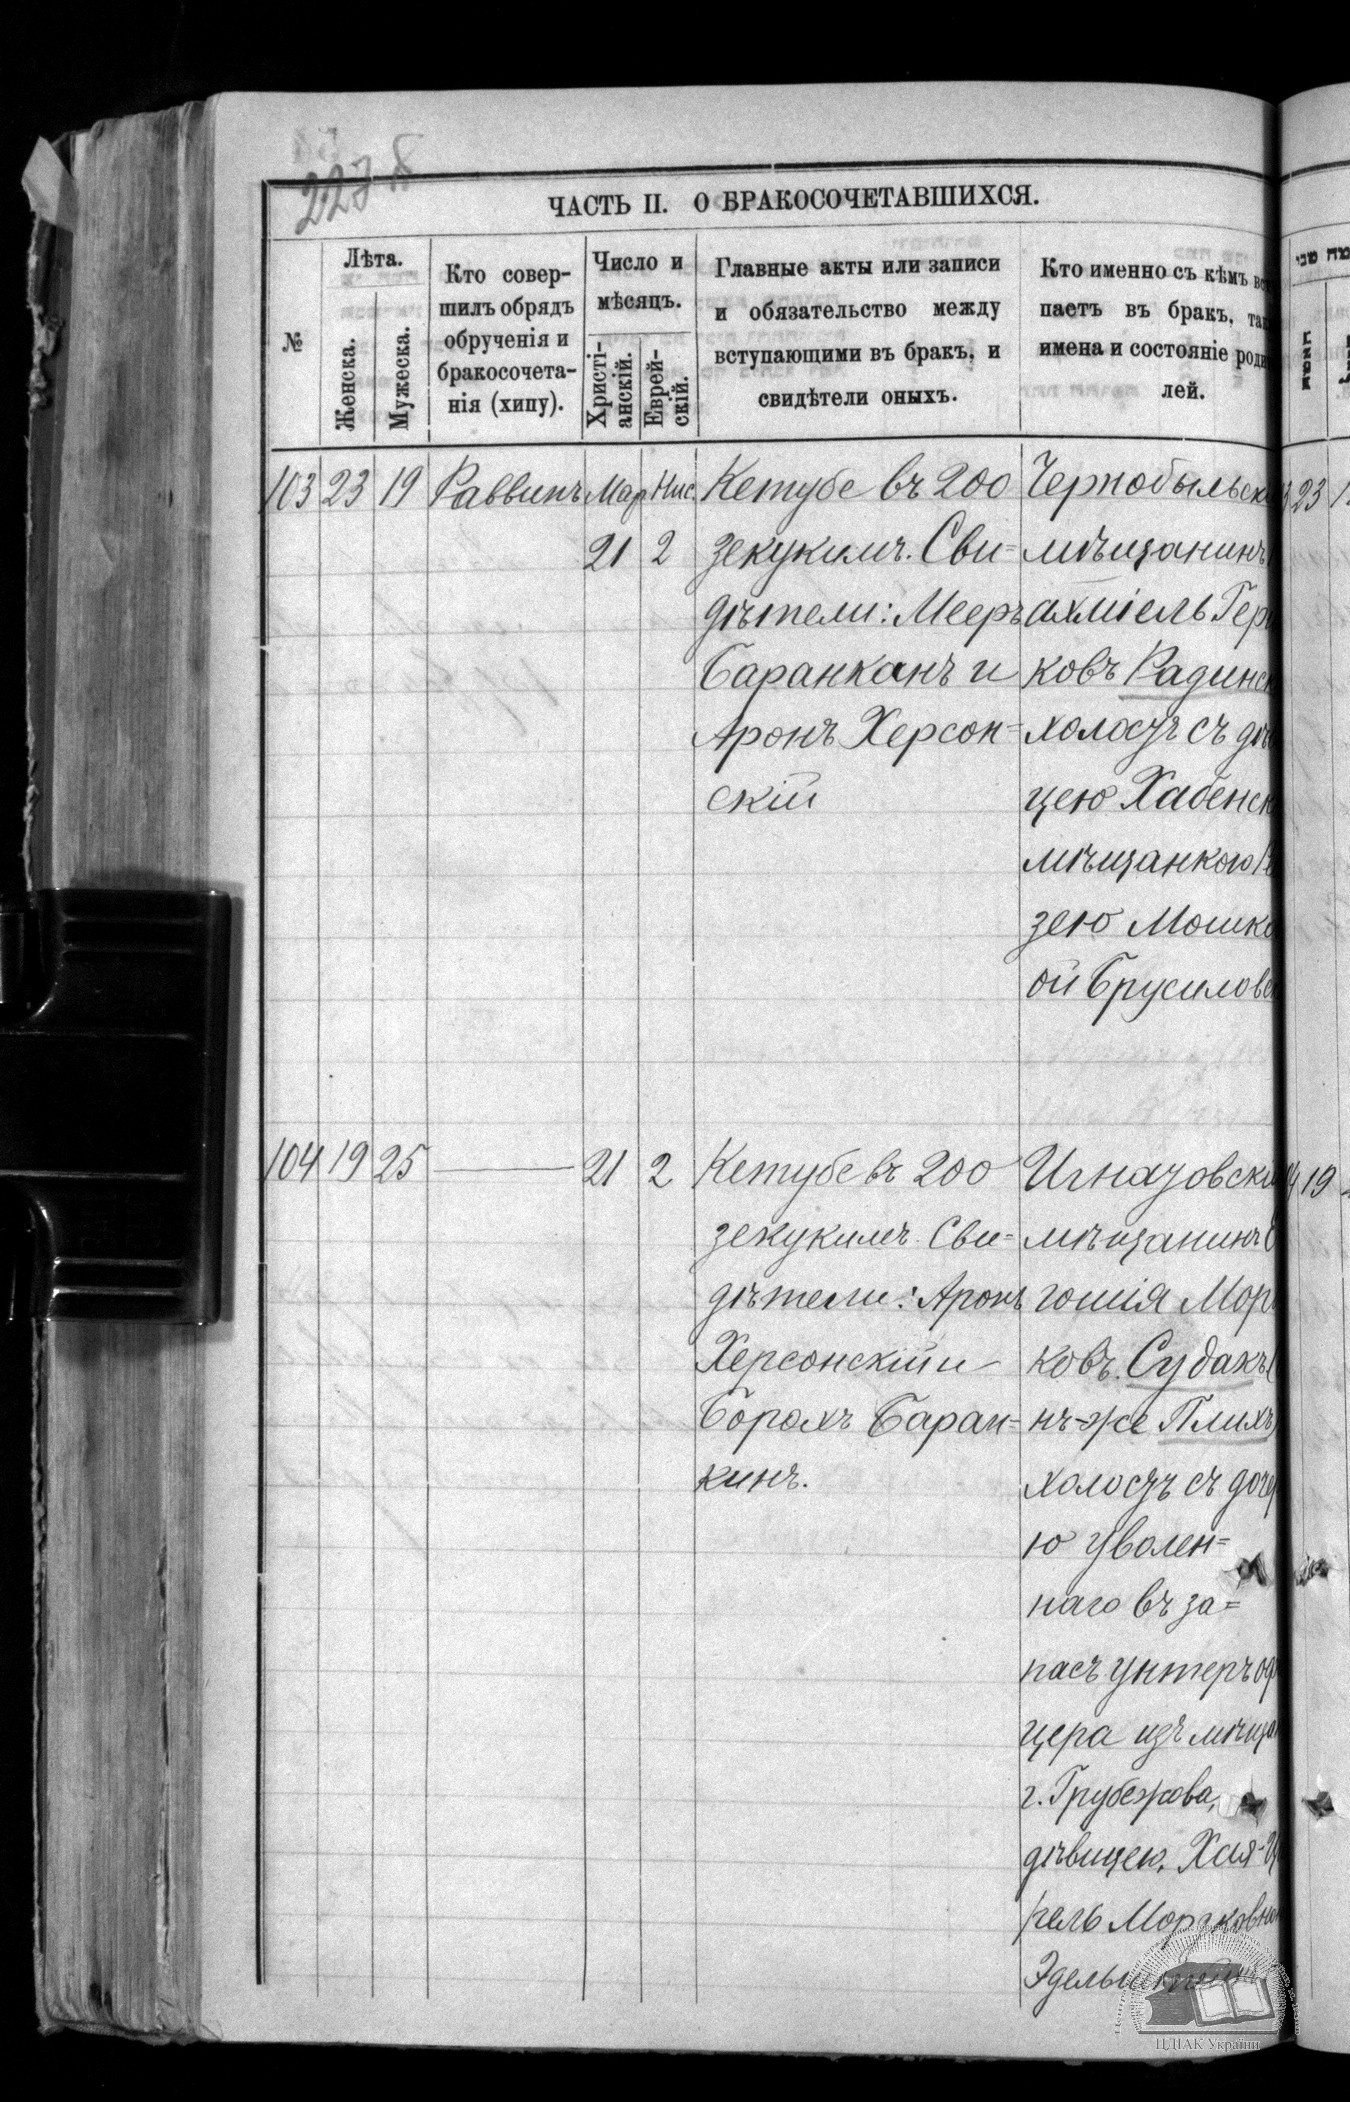 223
ЧАСТЬ II. О БРАКОСОЧЕТАВШИХСЯ.
№
Лѣта.
Женска.
Мужеска.
Кто совер-
шилъ обрядъ
обрученія и
бракосочета-
нія (хипу).
Число и
мѣсяцъ.
Христі-
анскій.
Еврей-
скій.
Главные акты или записи
и обязательство между
вступающими въ бракъ, и
свидѣтели оныхъ.
Кто именно съ кѣмъ вст
паетъ въ бракъ, так
имена и состояніе роди
лей.
103 23 19 Раввинъ Мар Нис.
21 2
Кетубе въ 200
зекукимъ. Сви=
дѣтели: Мееръ
Баранканъ и
Аронъ Херсон=
скій
Чернобыльск
мѣщанинъ
ахміель Гер
ковъ Радинск
холостъ съ дѣ
цею Хабенск
мѣщанкою
зею Мошко
ой Брусиловс
104 19 25 — 21 2
Кетубе въ 200
зекукимъ. Сви=
дѣтели: Аронъ
Херсонскій и
Борохъ Баран=
кинъ.
Игнатовскі
мѣщанинъ
гошія Мор
ковъ Судакъ (
нъ-же Плихъ)
холостъ съ доче
ю уволен=
наго въ за=
пасъ унтеръ оф
цера изъ мѣща
г. Грубежова,
дѣвицею, Хая-Ц
рель Морпковно
Эдельштейнъ
23
19
ЦДІАК України